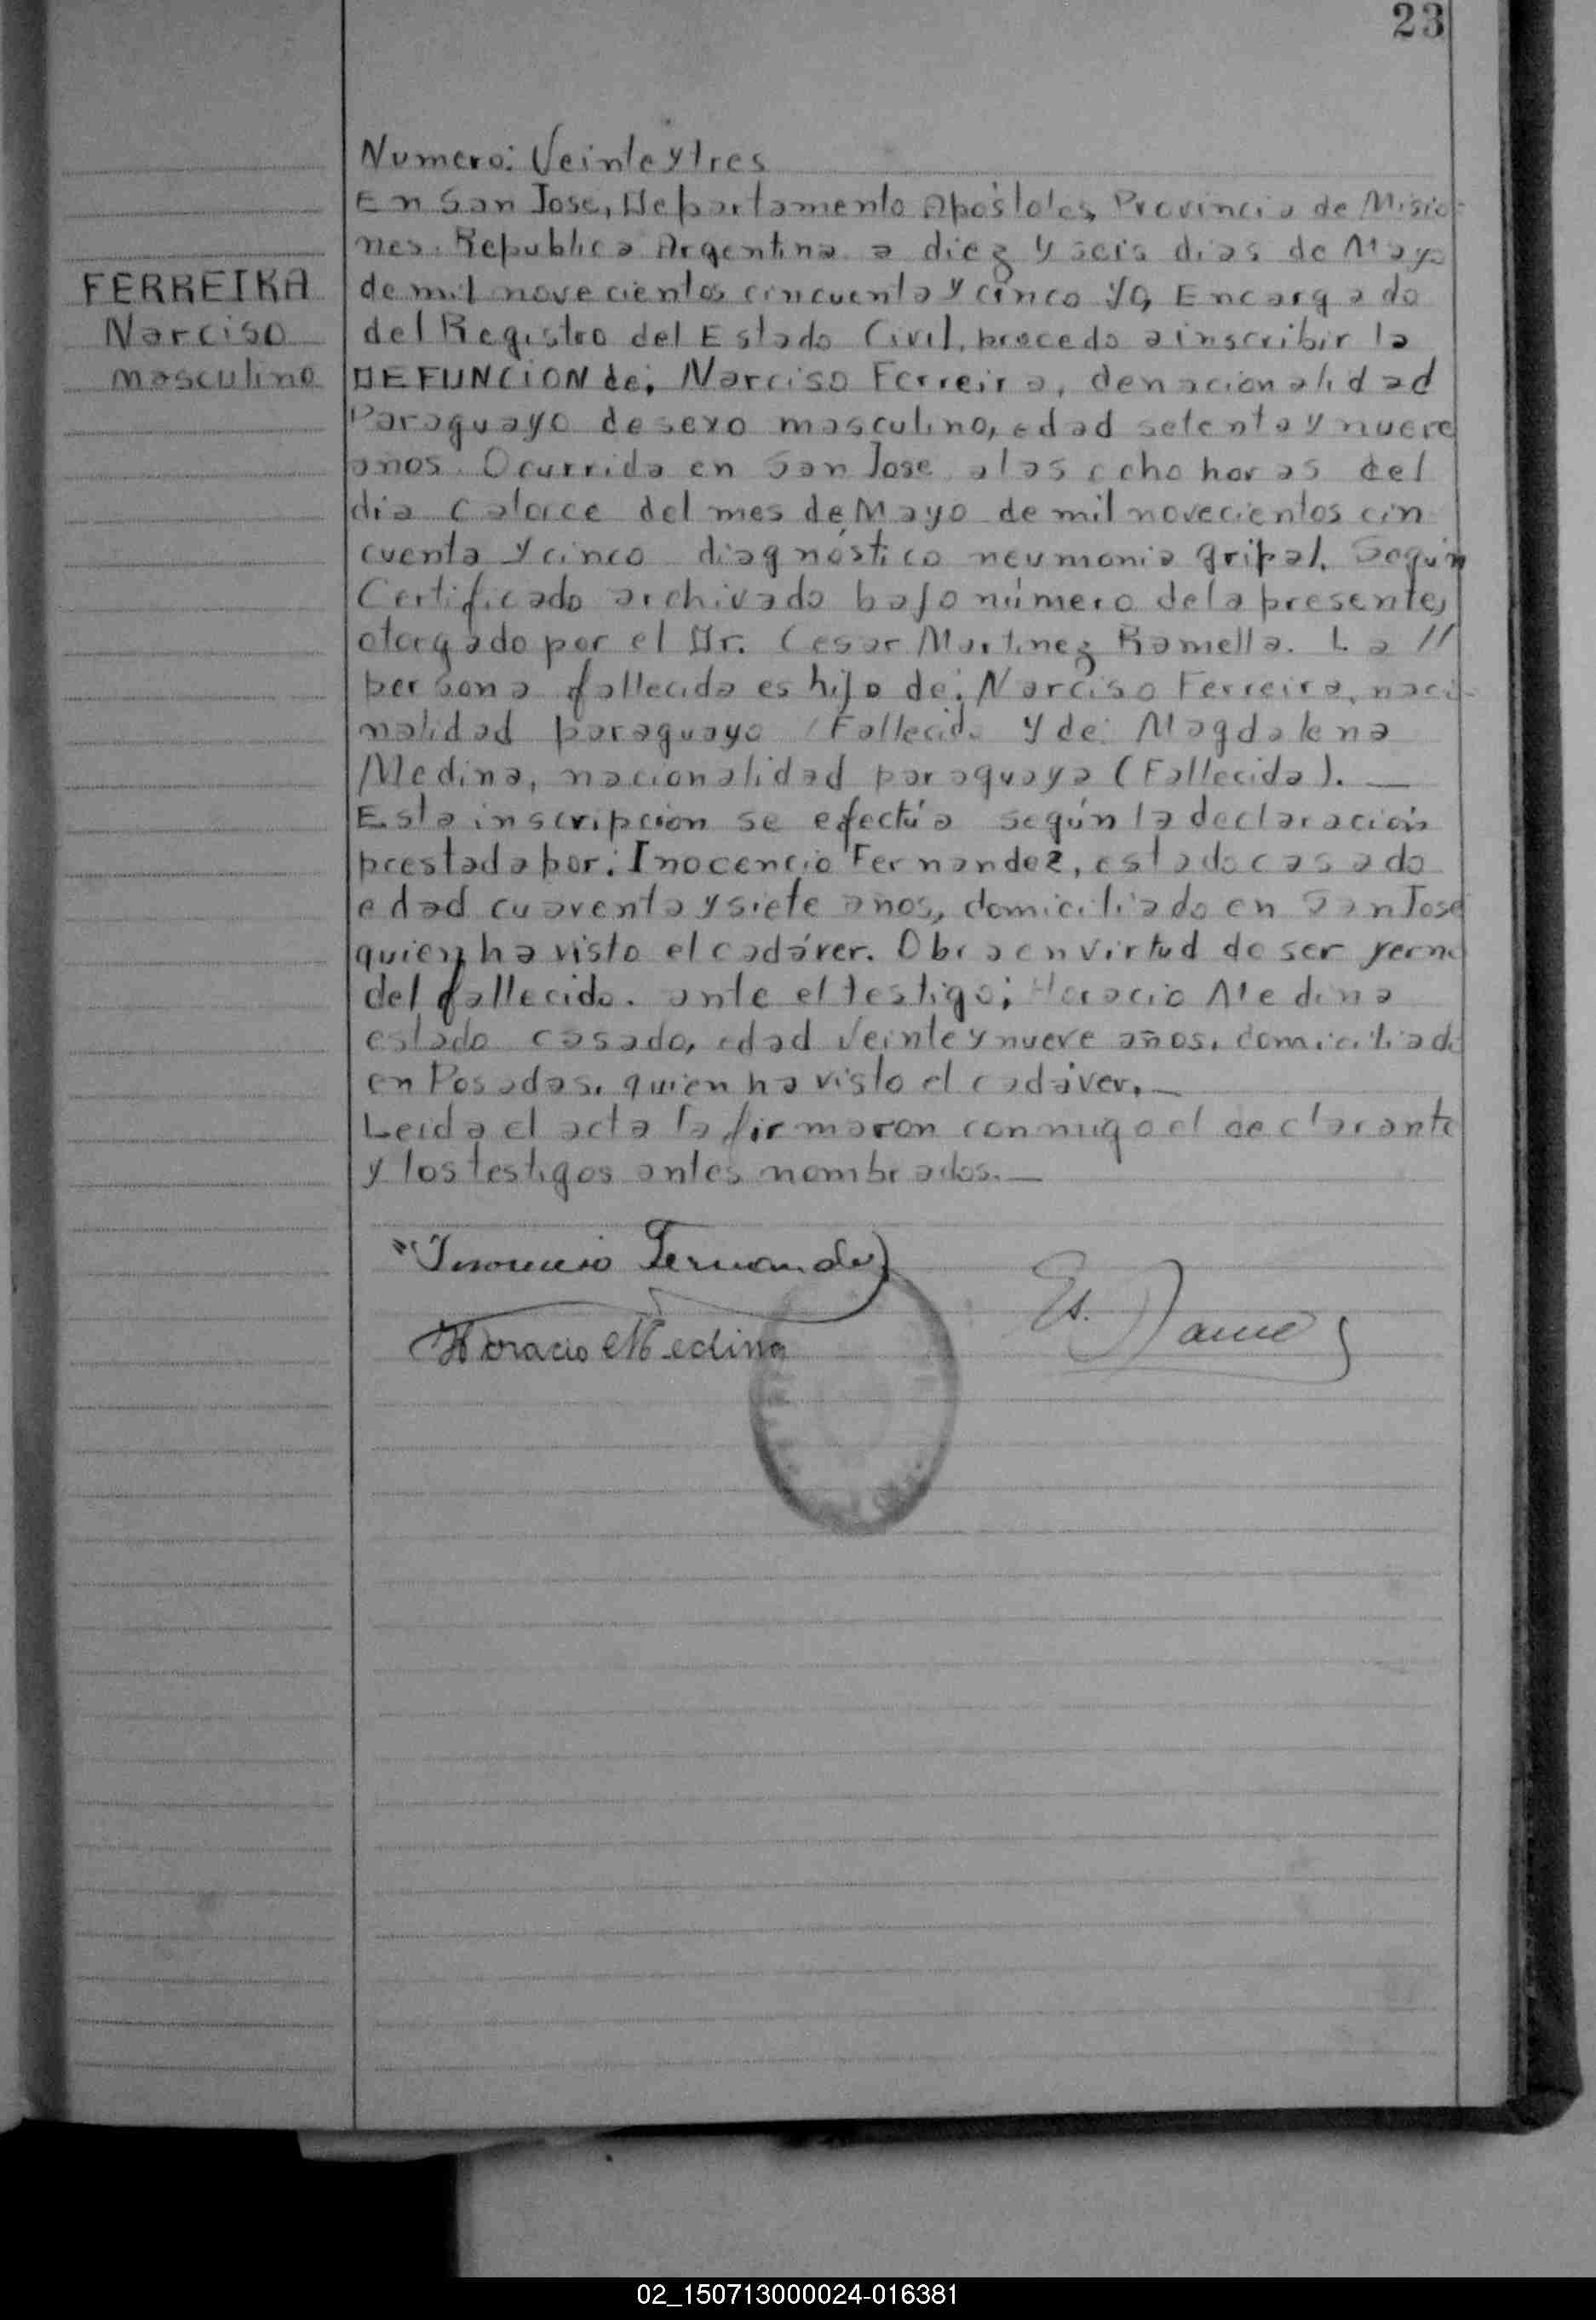 23
Numero: Veinte y tres
En San Jose, Departamento Apóstoles, Provincia de Misio-
nes. Republica Argentina a diez y seis dias de Mayo
FERREIRA
de mil novecientos cincuenta y cinco Yo, Encargado
Narciso
del Registro del Estado Civil, procedo a inscribir la
masculino
DEFUNCION de; Narciso Ferreira, de nacionalidad
Paraguayo de sexo masculino, edad setenta y nueve
años. Ocurrida en San Jose a las ocho horas del
dia catorce del mes de Mayo de mil novecientos cin
cuenta y cinco diagnóstico neumonia gripal. Según
Certificado archivado bajo número de la presente,
otorgado por el Dr. Cesar Martinez Ramella. La //
persona fallecida es hijo de; Narciso Ferreira, naci-
nalidad paraguayo (Fallecido y de: Magdalena
Medina, nacionalidad paraguaya (Fallecida). —
Esta inscripcion se efectúa según la declaración
prestada por: Inocencio Fernandez, estado casado
edad cuarenta y siete años, domiciliado en San Jose
quien ha visto el cadáver. Obra en virtud de ser yerno
del fallecido. ante el testigo; Horacio Medina
estado casado, edad veinte y nueve años, domiciliado
en Posadas, quien ha visto el cadáver. —
Leida el acta la firmaron conmigo el declarante
y los testigos antes nombrados. —
Inocencio Fernandez
Horacio Medina
02_150713000024-016381